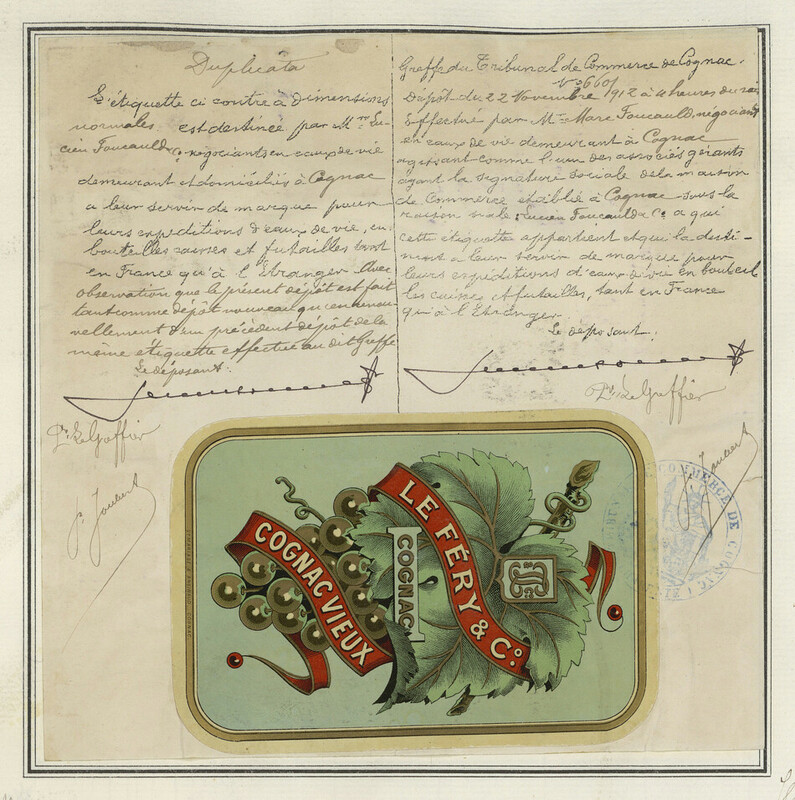 Duplicata
L'étiquette ci contre à dimensions
normales est destinée par Mrs Lu-
cien Foucauld & Co négociants en eaux de vie
demeurant et domiciliés à Cognac
a leur servir de marque pour
leurs expéditions d'eaux de vie, en
bouteilles caisses et futailles tant
en France qu'à l'Etranger. Avec
observation que le présent dépôt est fait
tant comme dépôt nouveau qu'en renou-
vellement d'un précédent dépôt de la
même étiquette effectué au dit Greffe
Le déposant:
Pr Le Greffier
P. Joubert
Greffe du Tribunal de Commerce de Cognac.
No 660
Dépôt du 22 Novembre 1912 à 4 heures du soir
Effectué par Mr Marc Foucauld, négociant
en eaux de vie demeurant à Cognac
agissant comme l'un des associés gérants
ayant la signature sociale de la maison
de Commerce établie à Cognac sous la
raison sociale Lucien Foucauld & Co a qui
cette étiquette appartient et qui la desti-
nent à leur servir de marque pour
leurs expéditions d'eaux de vie en bouteil
les caisses et futailles, tant en France
qu'à l'Etranger.
Le déposant:
Pr Le Greffier
P. Joubert
COMMERCE DE COGNAC
LE FÉRY & Co.
COGNAC
COGNAC VIEUX